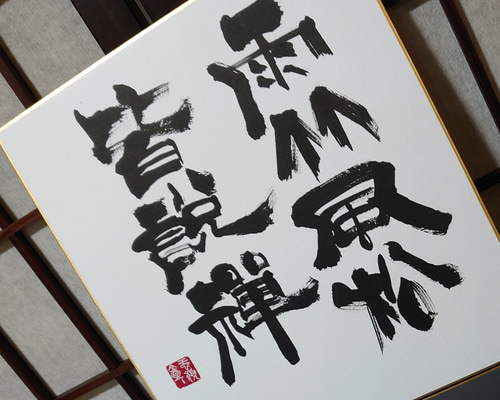 雨竹風松
皆説禅